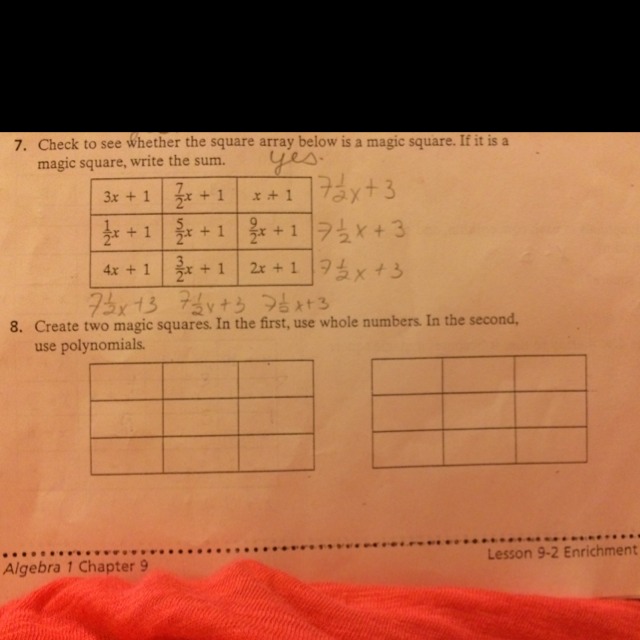 7. Check to see whether the square array below is a magic square. If it is a
magic square, write the sum. yes.
3x + 1 7/2x + 1 x + 1 7 1/2x + 3
1/2x + 1 5/2x + 1 9/2x + 1 7 1/2x + 3
4x + 1 3/2x + 1 2x + 1 7 1/2x + 3
7 1/2x + 3 7 1/2x + 3 7 1/2x + 3
8. Create two magic squares. In the first, use whole numbers. In the second,
use polynomials.
Algebra 1 Chapter 9 Lesson 9-2 Enrichment